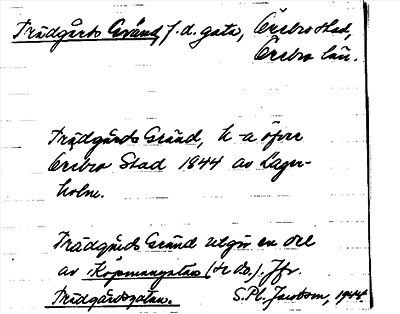 Trädgårds Gränd, f. d. gata, Örebro stad,
Örebro län.
Trädgårds Gränd, k-a öfver
Örebro Stad 1844 av Lager-
holm.
Trädgårds Gränd utgör en del
av Köpmangatan
Jfr
Trädgårdsgatan. S. Pl. Jacobson, 1944